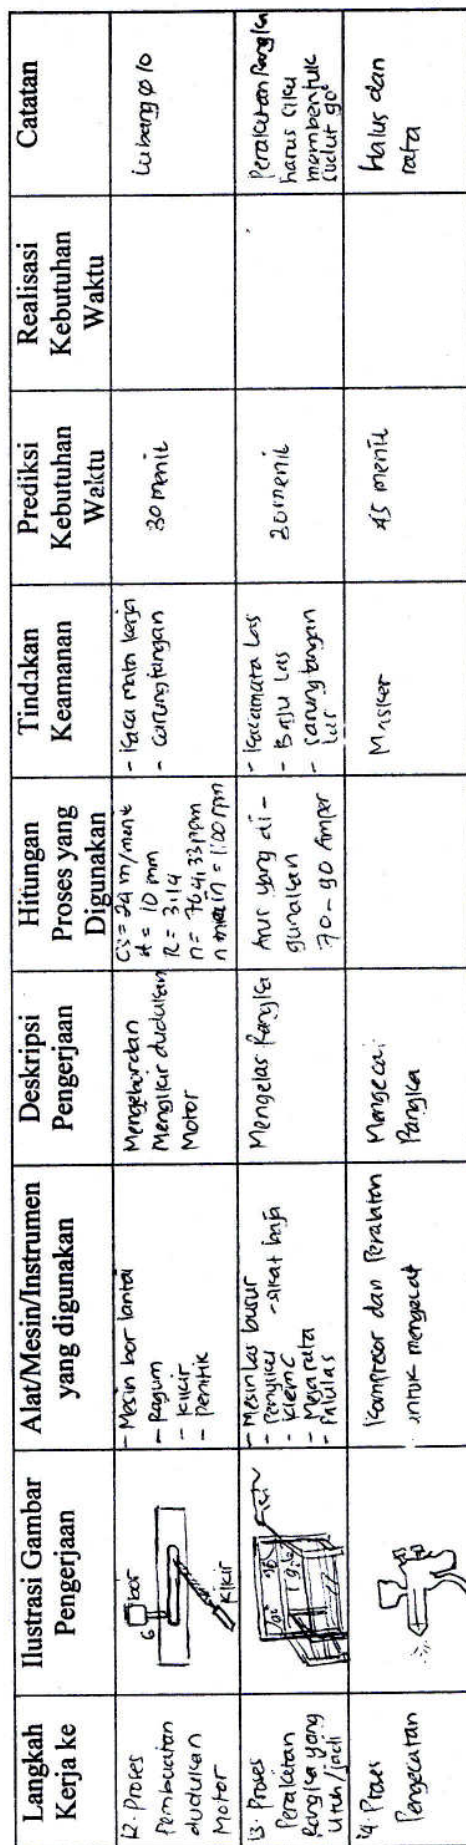 Langkah
Kerja ke
Ilustrasi Gambar
Pengerjaan
Alat/Mesin/Instrumen
yang digunakan
Deskripsi
Pengerjaan
Hitungan
Proses yang
Digunakan
Tindakan
Keamanan
Prediksi
Kebutuhan
Waktu
Realisasi
Kebutuhan
Waktu
Catatan
12. Proses
Pembuatan
dudukan
Motor
bor
6
Kikir
- Mesin bor lantai
- Ragum
- Kikir
- Penitik
Mengebor dan
Mengikir dudukan
Motor
Cs = 24 m/menit
d = 10 mm
π = 3.14
n = 764,33 rpm
- Kaca mata kerja
- Sarung tangan
30 menit
Lubang ø 10
13. Proses
Perakitan
Rangka yang
Utuh/jadi
90°
90°
- Mesin las busur
- Penyiku - sikat baja
- Klem C
- Meja rata
- Palu las
Mengelas Rangka
Arus yang di-
gunakan
70 - 90 Amper
- Kacamata Las
- Baju Las
- Sarung tangan
las
20 menit
Perakitan Rangka
harus siku
membentuk
sudut 90°
14. Proses
Pengecatan
Kompresor dan Peralatan
untuk mengecat
Mengecat
Rangka
Masker
45 menit
Halus dan
rata